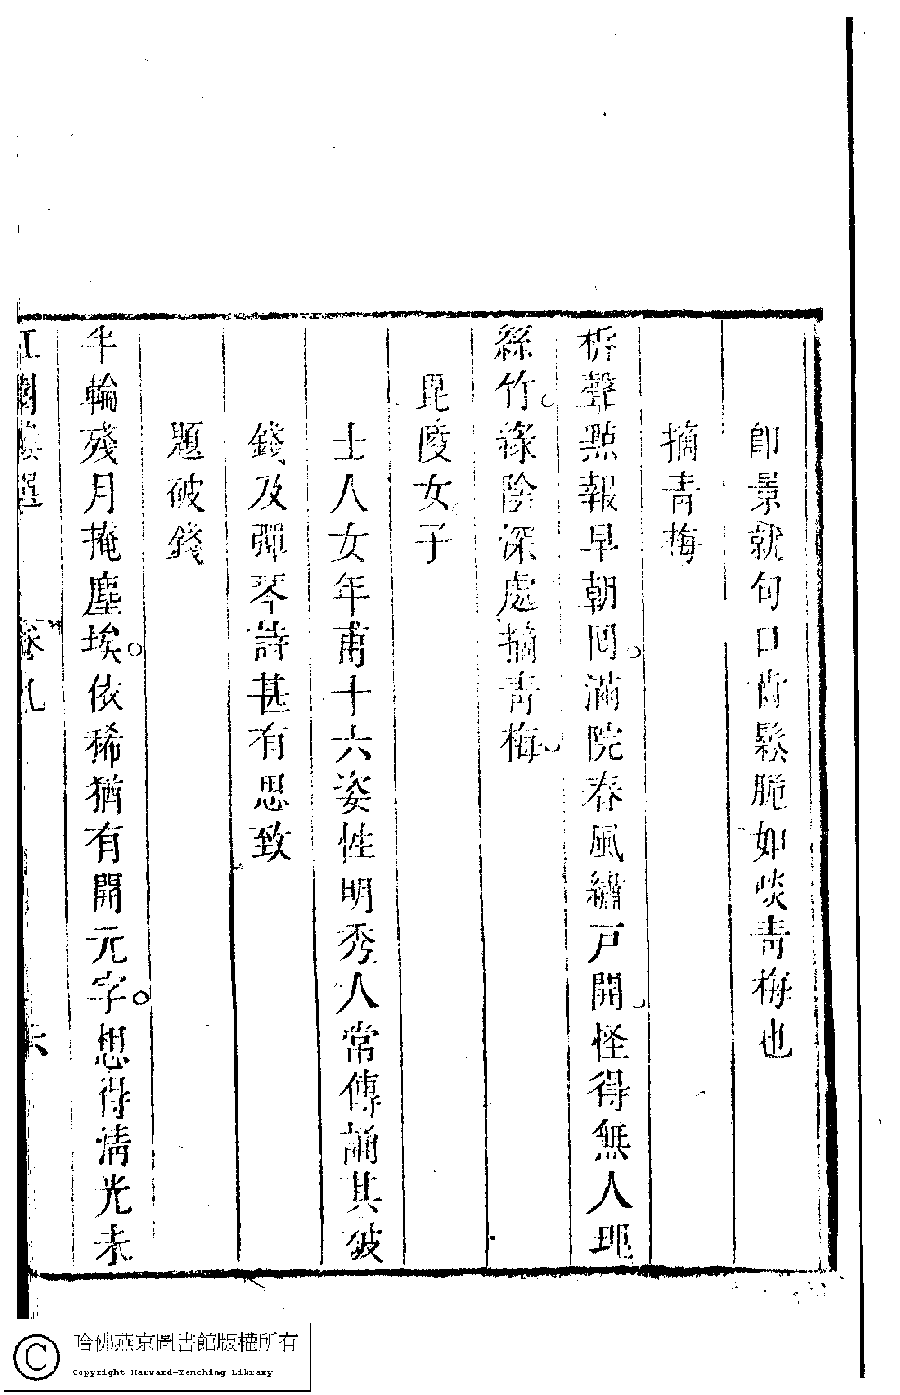 卽景就句口齒鬆脆如啖青梅也
摘青梅
柝聲點報早朝囘滿院春風繡戸開怪得無人理
絲竹綠陰深處摘青梅
毘陵女子
士人女年甫十六姿性明秀人常傳誦其破
錢及彈琴詩甚有思致
題破錢
半輪殘月掩塵埃依稀猶有開元字想得淸光未
紅蘭 選 卷九 六
哈佛燕京圖書館版權所有
Copyright Harvard-Yenching Library